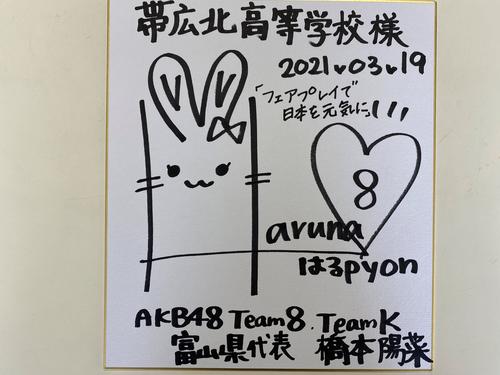 帯広北高等学校様
2021♥03♥19
「フェアプレイで
日本を元気に」
8
aruna
はるpyon
AKB48 Team8. TeamK
富山県代表 橋本陽菜